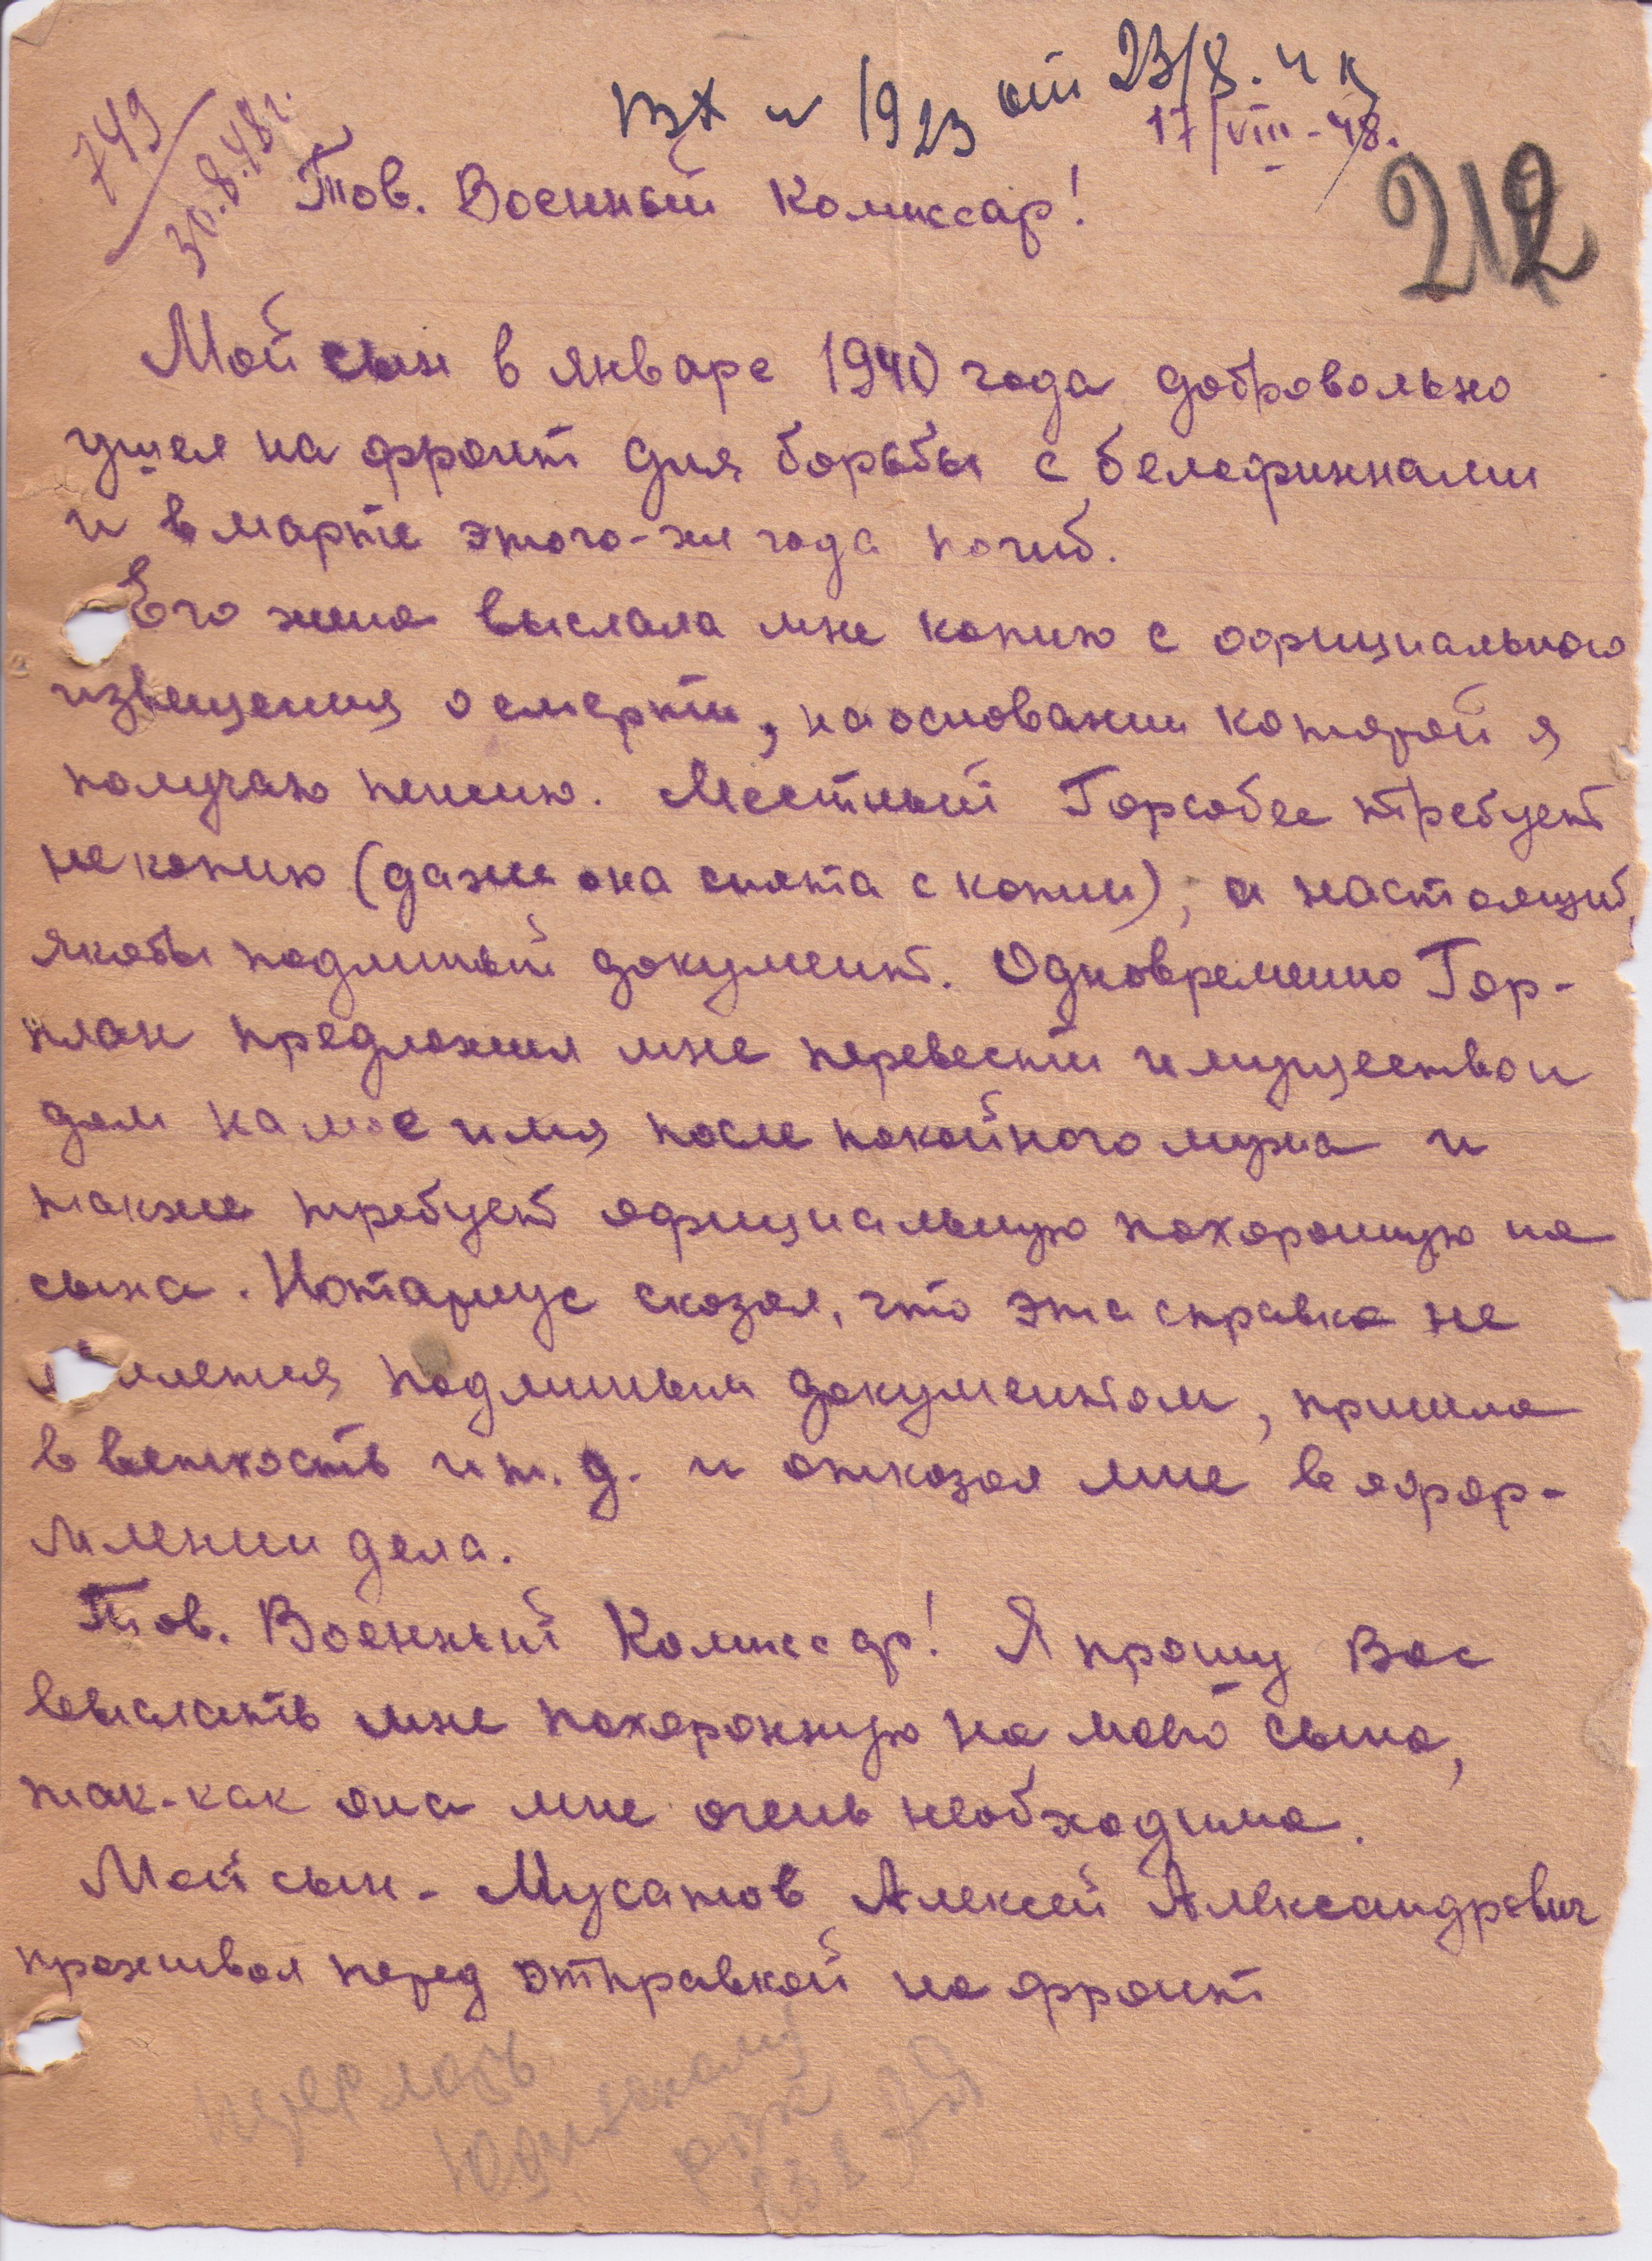 749
30.8.48г.
вх № 1923 от 23/8.48
17/VIII-48.
212
Тов. Военный Комиссар!
Мой сын в январе 1940 года добровольно
ушел на фронт для борьбы с белофиннами
и в марте этого-же года погиб.
Его жена выслала мне копию с официального
извещения о смерти, на основании которой я
получаю пенсию. Местный Горсобес требует
не копию (даже она снята с копии), а настоящий,
якобы подлинный документ. Одновременно Гор-
план предложил мне перевести имущество и
дом на мое имя после покойного мужа и
также требует официальную похоронную на
сына. Нотариус сказал, что эта справка не
является подлинным документом, пришла
в ветхость и т. д. и отказал мне в офор-
млении дела.
Тов. Военный Комиссар! Я прошу Вас
выслать мне похоронную на моего сына,
так-как она мне очень необходима.
Мой сын - Мусатов Алексей Александрович
проживал перед отправкой на фронт